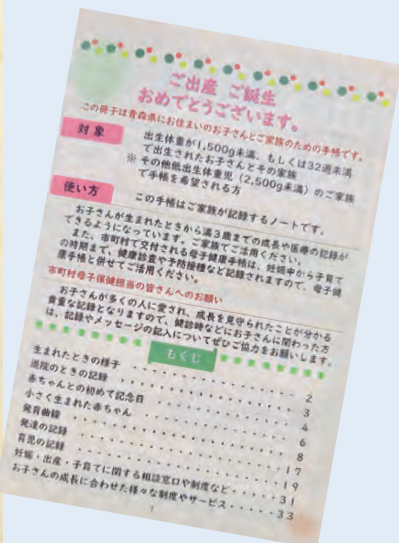 ご出産 ご誕生
おめでとうございます。
この冊子は青森県にお住まいのお子さんとご家族のための手帳です。
対象
出生体重が1,500g未満、もしくは32週未満
で出生されたお子さんとその家族
※ その他低出生体重児（2,500g未満）のご家族
で手帳を希望される方
使い方
この手帳はご家族が記録するノートです。
お子さんが生まれたときから満3歳までの成長や医療の記録が
できるようになっています。ご家族でご活用ください。
また、市町村で交付される母子健康手帳は、妊娠中から子育て
の時期まで、健康診査や予防接種など記録されますので、母子健
康手帳と併せてご活用ください。
市町村母子保健担当の皆さんへのお願い
お子さんが多くの人に愛され、成長を見守られたことが分かる
貴重な記録となりますので、健診時などにお子さんに関わった方
は、記録やメッセージの記入についてぜひご協力をお願いします。
もくじ
生まれたときの様子 ・・・・・・・・・・・・・・・ 2
退院のときの記録 ・・・・・・・・・・・・・・・ 3
赤ちゃんとの初めて記念日 ・・・・・・・・・・・・ 4
小さく生まれた赤ちゃん ・・・・・・・・・・・・・ 6
発育曲線 ・・・・・・・・・・・・・・・・・・・ 8
発達の記録 ・・・・・・・・・・・・・・・・・・ 17
育児の記録 ・・・・・・・・・・・・・・・・・・ 19
妊娠・出産・子育てに関する相談窓口や制度など・・・・・ 31
お子さんの成長に合わせた様々な制度やサービス・・・・・ 33
1